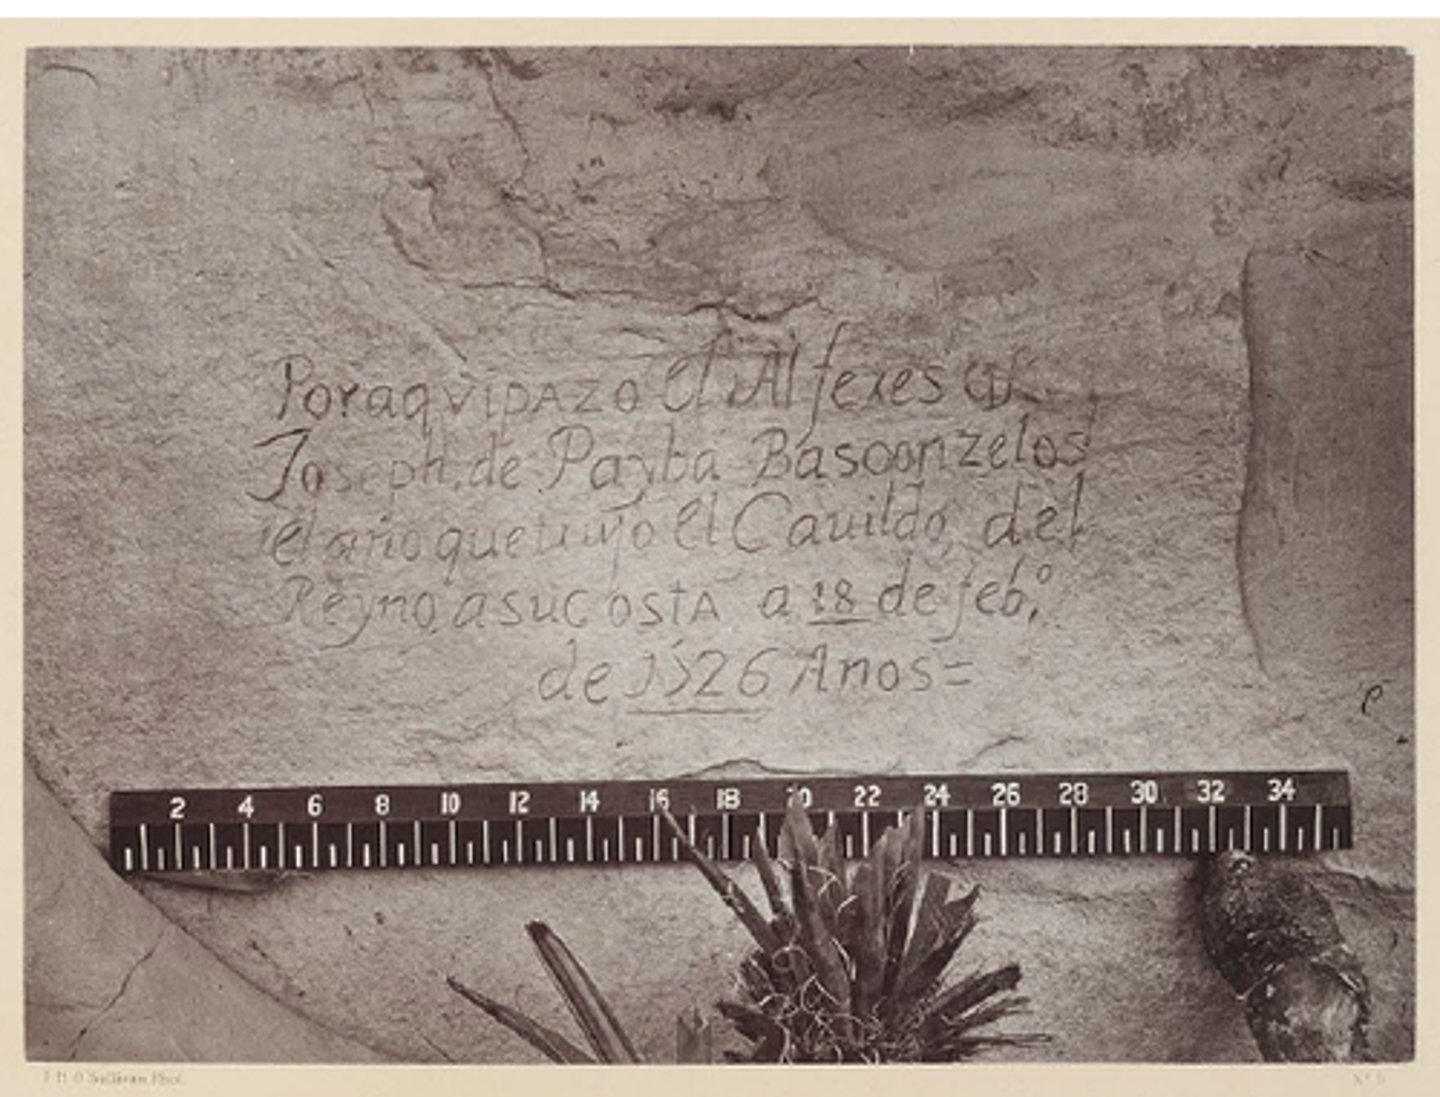 Por aqvi pazo el Alfexes D.
Joseph, de Payba Basconzelos
el año que tuyo el Cauildo del
Reyno a su costA a 18 de feb.º
de 1526 Años=
2 4 6 8 10 12 14 16 18 20 22 24 26 28 30 32 34
T. H. O'Sullivan Phot.